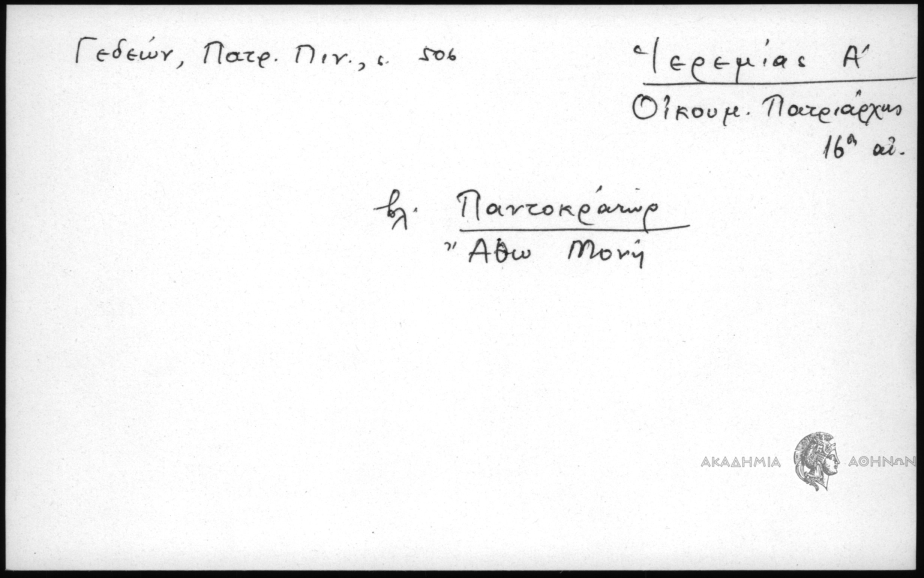 Γεδεών, Πατρ. Πιν., σ. 506
Ἱερεμίας Α'
Οἰκουμ. Πατριάρχης
16ος αἰ.
βλ. Παντοκράτωρ
Ἄθω Μονή
ΑΚΑΔΗΜΙΑ ΑΘΗΝΩΝ